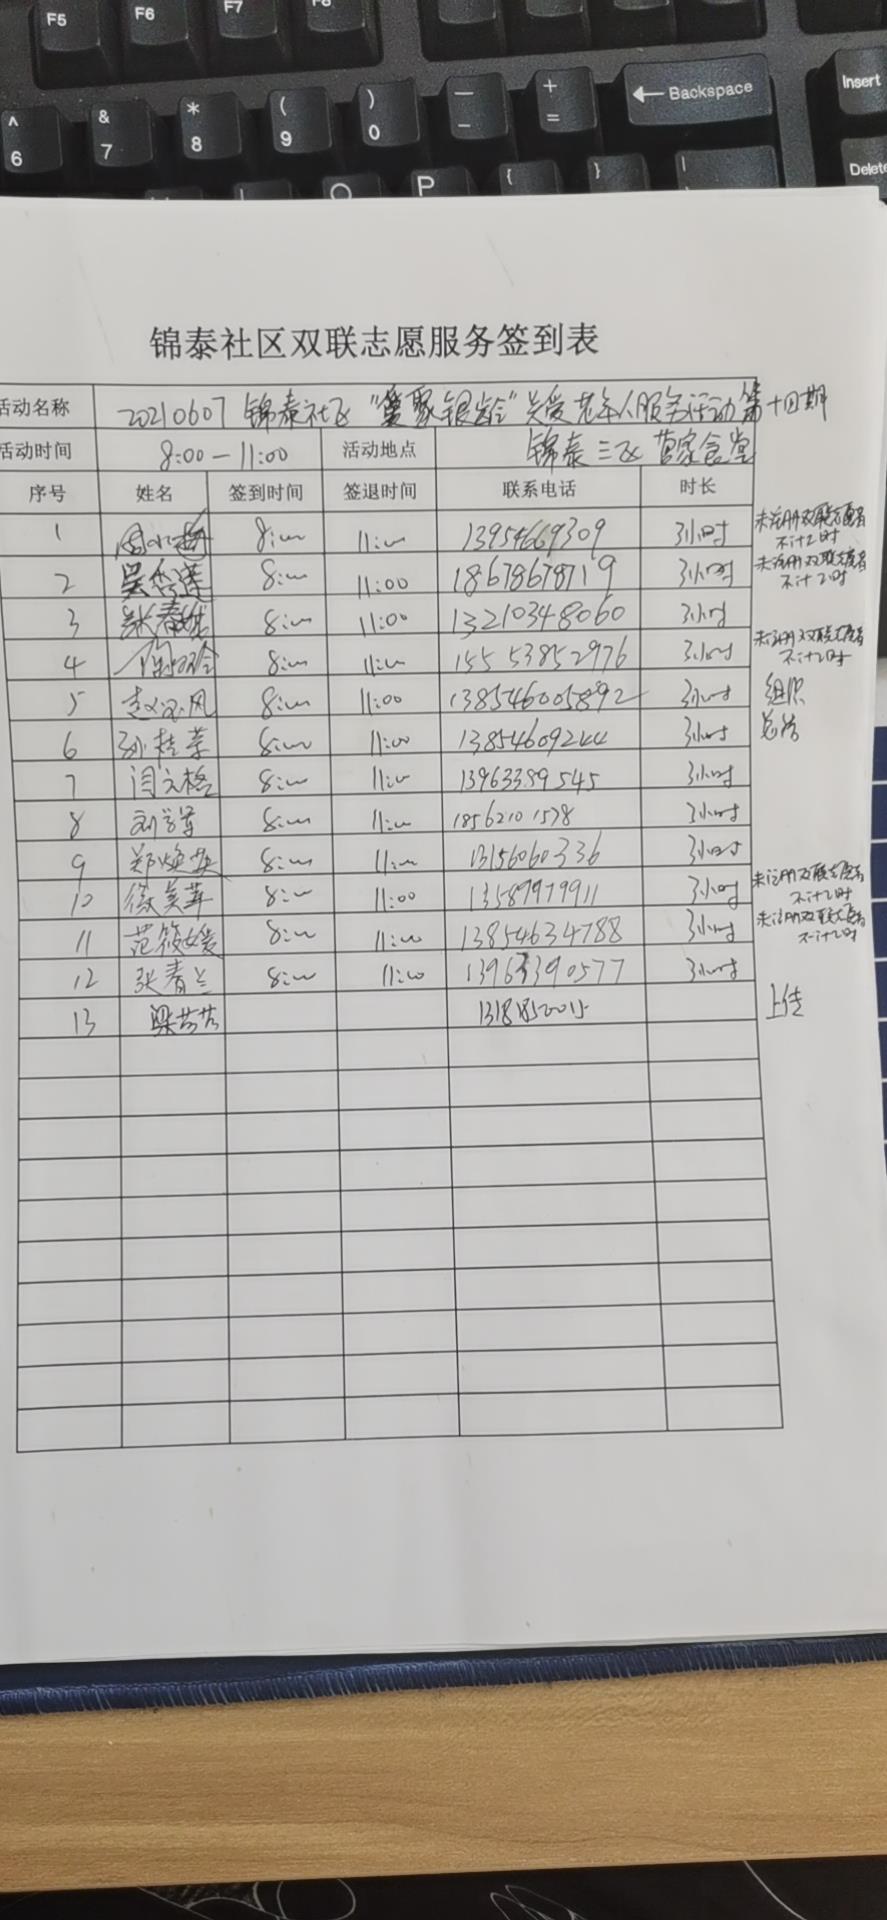 F5 F6 F7 F8
^ & * ( ) — + ← Backspace Insert
6 7 8 9 0 - =
O P { } | Delete
锦泰社区双联志愿服务签到表
活动名称 20210607 锦泰社区“爱聚银龄”关爱老年人服务活动第十四期
活动时间 8:00-11:00 活动地点 锦泰三区
序号 姓名 签到时间 签退时间 联系电话 时长
1 8:00 11:00 13954669309 3小时 未注册双联志愿者
不计时
2 8:00 11:00 18678678719 3小时 未注册双联志愿者
不计时
3 8:00 11:00 13210348060 3小时
4 8:00 11:00 15553852976 3小时 未注册双联志愿者
不计时
5 8:00 11:00 138546005892 3小时 组织
6 孙桂芳 8:00 11:00 13854609244 3小时 总结
7 闫文格 8:00 11:00 13963389545 3小时
8 8:00 11:00 18562101578 3小时
9 8:00 11:00 13156060336 3小时
10 8:00 11:00 13589979911 3小时 未注册双联志愿者
不计时
11 范筱媛 8:00 11:00 13854634788 3小时 未注册双联志愿者
不计时
12 张春兰 8:00 11:00 13963390577 3小时
13 梁芳芳 上传